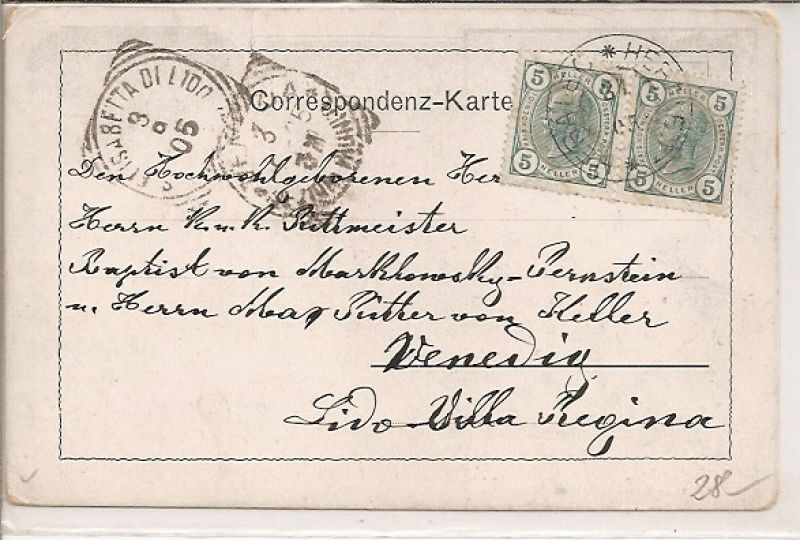 Correspondenz-Karte
ELISABETTA DI LIDO
3
9
05
3
5
5
5
5
HELLER
HELLER
5
5
5
5
HELLER
HELLER
Den Hochwohlgeborenen Her
Herrn K. u. K. Rittmeister
Baptist von Markhowsky-Pernstein
u. Herrn Max Ritter von Keller
Venedig
Lido Villa Regina
28